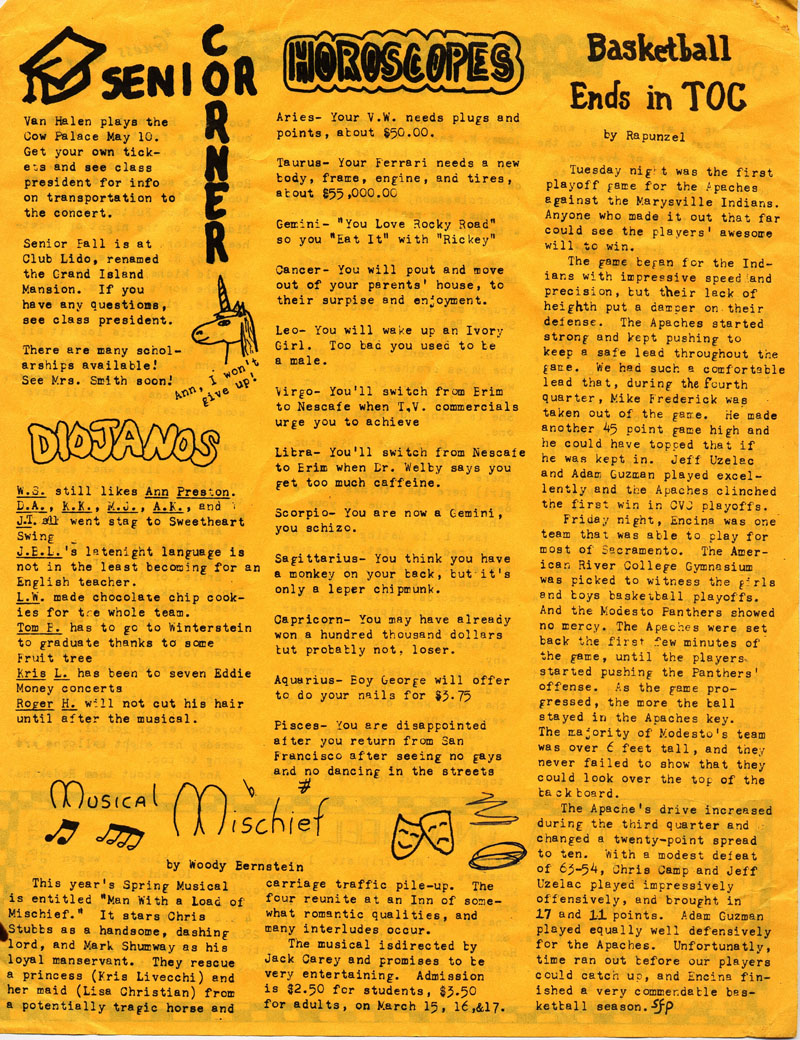 SENIOR
CORNER
Van Halen plays the
Cow Palace May 10.
Get your own tick-
ets and see class
president for info
on transportation to
the concert.
Senior Ball is at
Club Lido, renamed
the Grand Island
Mansion. If you
have any questions,
see class president.
There are many schol-
arships available!
See Mrs. Smith soon!
Ann, I won't
give up!
DIOJANOS
W.S. still likes Ann Preston.
D.A., K.K., M.J., A.K., and
J.T. all went stag to Sweetheart
Swing
J.E.L.'s latenight language is
not in the least becoming for an
English teacher.
L.W. made chocolate chip cook-
ies for the whole team.
Tom B. has to go to Winterstein
to graduate thanks to some
Fruit tree
Kris L. has been to seven Eddie
Money concerts
Roger H. will not cut his hair
until after the musical.
HOROSCOPES
Aries- Your V.W. needs plugs and
points, about $50.00.
Taurus- Your Ferrari needs a new
body, frame, engine, and tires,
about $55,000.00
Gemini- "You Love Rocky Road"
so you "Eat It" with "Rickey"
Cancer- You will pout and move
out of your parents' house, to
their surpise and enjoyment.
Leo- You will wake up an Ivory
Girl. Too bad you used to be
a male.
Virgo- You'll switch from Brim
to Nescafe when T.V. commercials
urge you to achieve
Libra- You'll switch from Nescafe
to Brim when Dr. Welby says you
get too much caffeine.
Scorpio- You are now a Gemini,
you schizo.
Sagittarius- You think you have
a monkey on your back, but it's
only a leper chipmunk.
Capricorn- You may have already
won a hundred thousand dollars
but probably not, loser.
Aquarius- Boy George will offer
to do your nails for $3.75
Pisces- You are disappointed
after you return from San
Francisco after seeing no gays
and no dancing in the streets
Basketball
Ends in TOC
by Rapunzel
Tuesday night was the first
playoff game for the Apaches
against the Marysville Indians.
Anyone who made it out that far
could see the players' awesome
will to win.
The game began for the Ind-
ians with impressive speed and
precision, but their lack of
heighth put a damper on their
defense. The Apaches started
strong and kept pushing to
keep a safe lead throughout the
game. We had such a comfortable
lead that, during the fourth
quarter, Mike Frederick was
taken out of the game. He made
another 45 point game high and
he could have topped that if
he was kept in. Jeff Uzelac
and Adam Guzman played excel-
lently and the Apaches clinched
the first win in CVC playoffs.
Friday night, Encina was one
team that was able to play for
most of Sacramento. The Amer-
ican River College Gymnasium
was picked to witness the girls
and boys basketball playoffs.
And the Modesto Panthers showed
no mercy. The Apaches were set
back the first few minutes of
the game, until the players
started pushing the Panthers'
offense. As the game pro-
gressed, the more the ball
stayed in the Apaches key.
The majority of Modesto's team
was over 6 feet tall, and they
never failed to show that they
could look over the top of the
backboard.
The Apache's drive increased
during the third quarter and
changed a twenty-point spread
to ten. With a modest defeat
of 63-54, Chris Camp and Jeff
Uzelac played impressively
offensively, and brought in
17 and 11 points. Adam Guzman
played equally well defensively
for the Apaches. Unfortunatly,
time ran out before our players
could catch up, and Encina fin-
ished a very commendable bas-
ketball season. SFP
Musical Mischief
by Woody Bernstein
This year's Spring Musical
is entitled "Man With a Load of
Mischief." It stars Chris
Stubbs as a handsome, dashing
lord, and Mark Shumway as his
loyal manservant. They rescue
a princess (Kris Livecchi) and
her maid (Lisa Christian) from
a potentially tragic horse and
carriage traffic pile-up. The
four reunite at an Inn of some-
what romantic qualities, and
many interludes occur.
The musical isdirected by
Jack Carey and promises to be
very entertaining. Admission
is $2.50 for students, $3.50
for adults, on March 15, 16,&17.